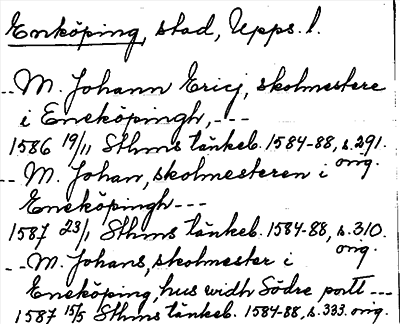 Enköping, stad, Upps. l.
-- M. Johann Ericj, skolmestere
i Eneköpingh, ---
1586 19/11 Sthms tänkeb. 1584-88, s. 291.
orig.
-- M. Johan, skolmesteren i
Eneköpingh ---
1587 23/1 Sthms tänkeb. 1584-88, s. 310.
orig.
-- M. Johans, skolmester i
Eneköping, hus widh Södre portt ---
1587 15/5 Sthms tänkeb. 1584-88, s. 333. orig.